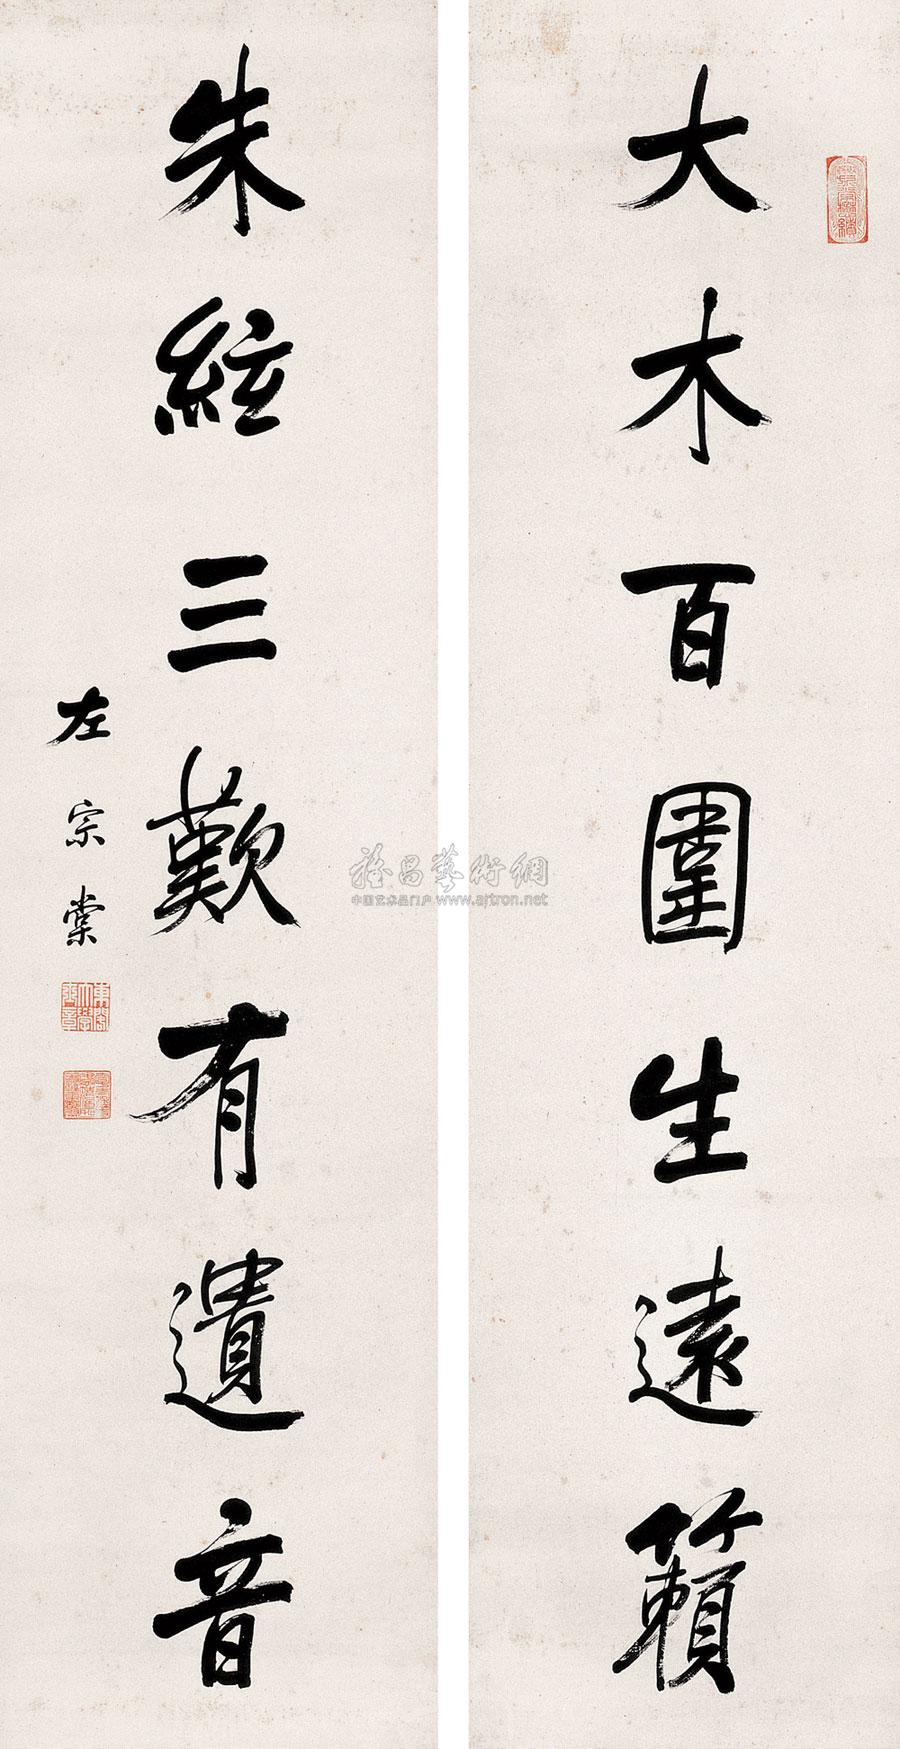 大木百圍生遠籟
朱絃三歎有遺音
左宗棠
雅昌藝術網
中国艺术品门户 www.artron.net